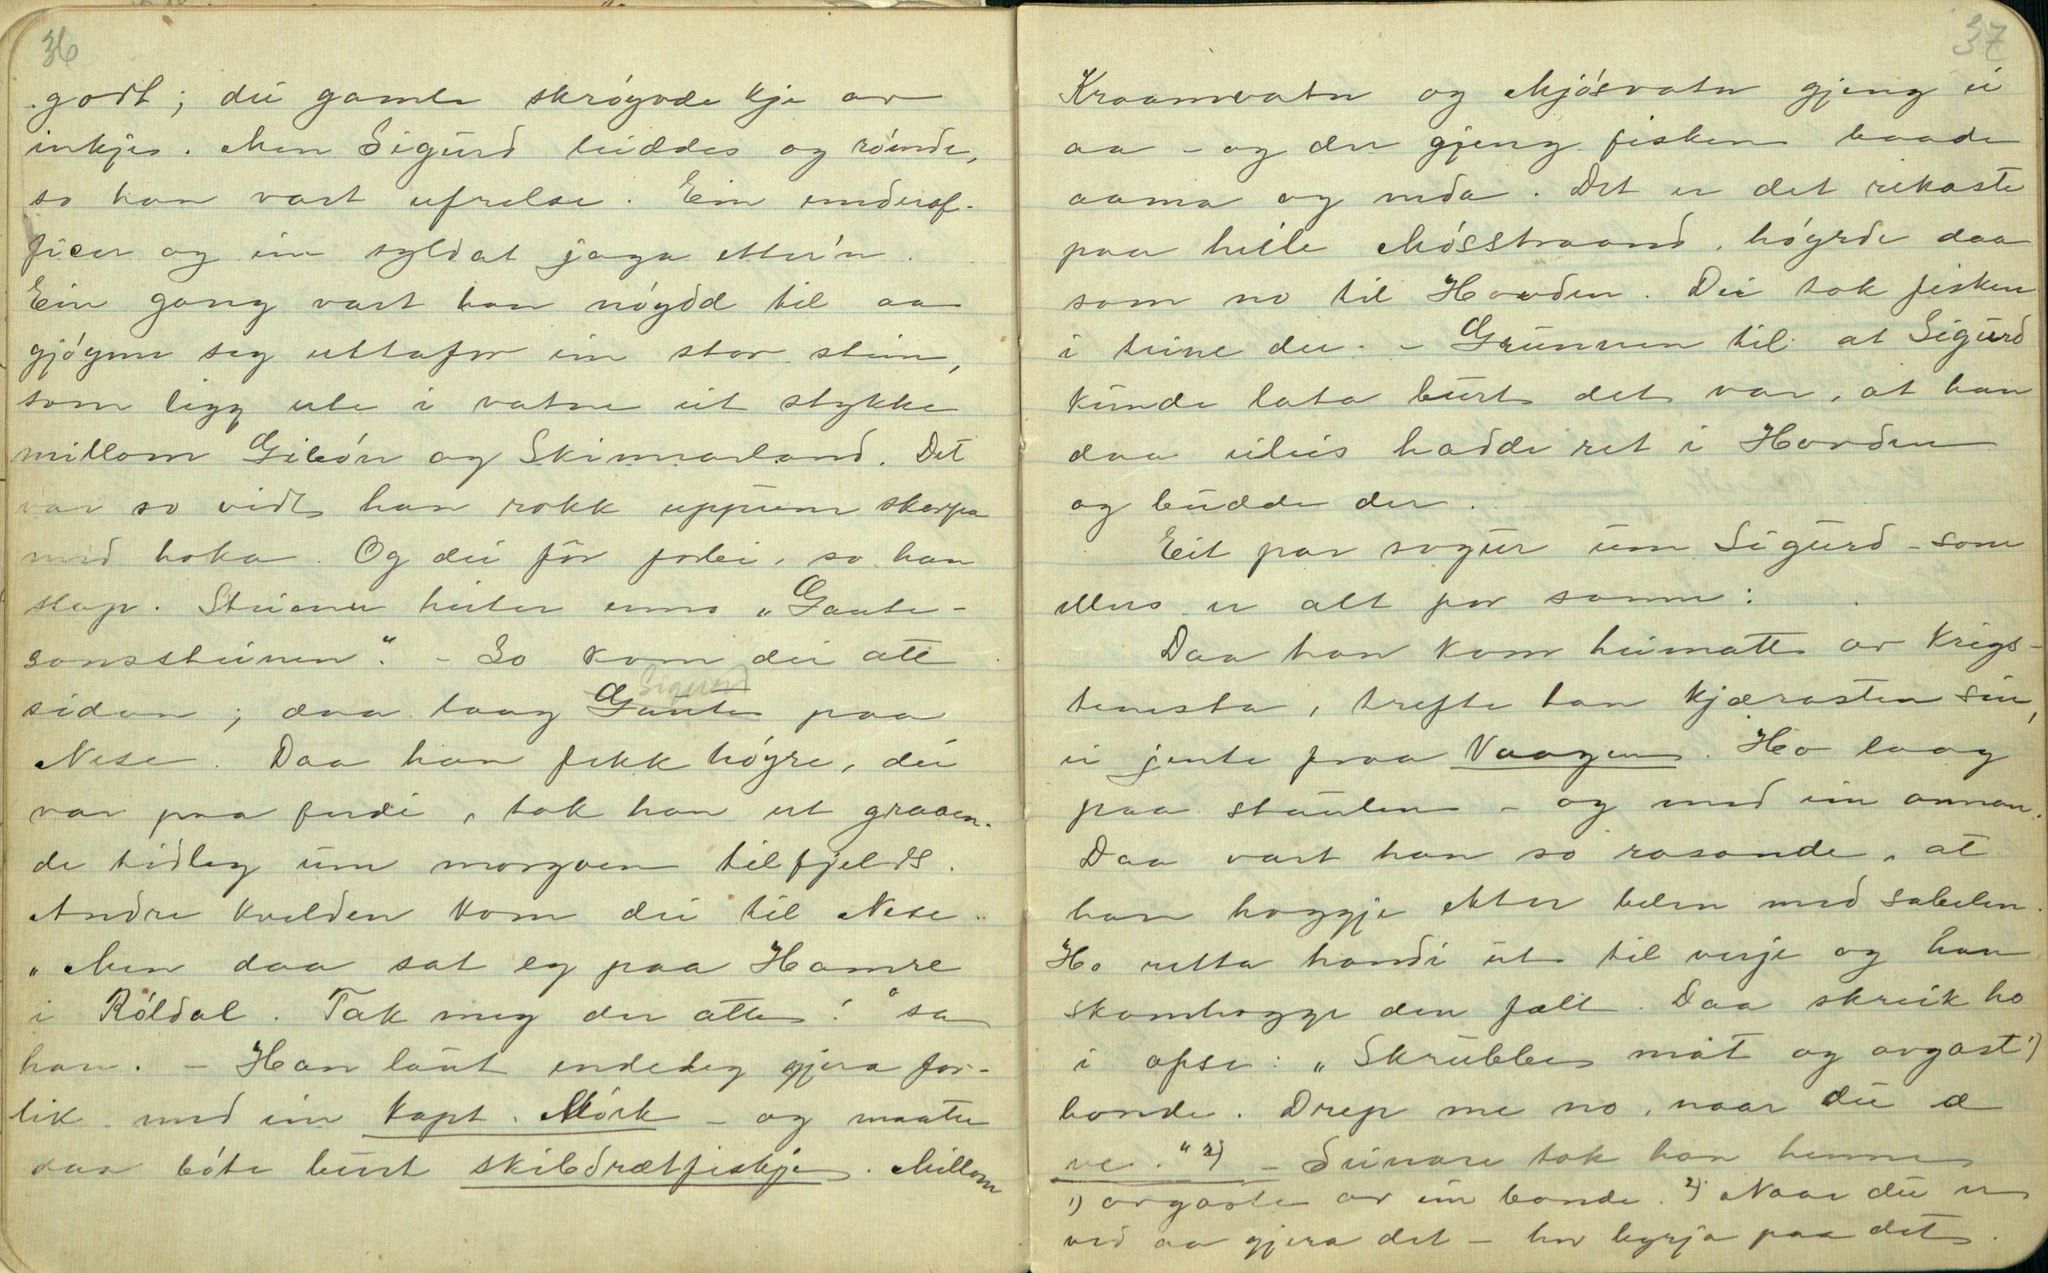 36
godt; dei gamle skrøgvde kje av
inkjes. Men Sigurd leiddes og røinde,
so han vart ufrelse. Ein underof-
ficer og ein syldat jaga etter'n.
Ein gong vart han nøgdd til aa
gjøyme seg uttafor ein stor stein,
som ligg ute i vatne eit stykke
millom Gibøn og Skinnarland. Det
var so vidt han rokk uppum skarpa
med hoka. Og dei för forbi, so han
slap. Steinen heiter enno „Gaute-
sonssteinen“. – So kom dei att
sidan; daa laag Gaute Sigurd paa
Nese. Daa han fekk høyre, dei
var paa ferdi, tok han ut graaen-
de tidleg um morgoen tilfjelds.
Andre kvelden kom dei til Nese.
„Men daa sat eg paa Hamre
i Røldal. Tak meg der atte!“ sa
han. – Han laut endeleg gjera for-
lik med ein Kapt. Mørk – og maatte
daa bøte burt skibdrætfiskje. Millom
37
Kraamvatn og Mjøsvatn gjeng ei
aa – og der gjeng fisken baade
aama og neda. Det er det rikaste
paa heile Møsstraand, høyrde daa
som no til Hovden. Dei tok fisken
i teine der. – Grunnen til at Sigurd
kunde lata burt det var, at han
daa eileis hadde ret i Hovden
og budde der.
Eit par sogur um Sigurd – som
ellers er alt for sanne:
Daa han kom heimatt av krigs-
tenesta, trefte han kjærasten sin,
ei jente fraa Vaagen. Ho laag
paa staulen – og med ein annan.
Daa vart han so rasande, at
han hoggje etter helen med sabelen.
Ho retta handi ut til verje og han
skamhogge den fælt. Daa skreik ho
i ofse: „Skrubbe mat og avgast 1)
bonde. Drep me no, naar du æ
ve.“ 2) – Seinare tok han henne
1) avgaste av ein bonde. 2) Naar du er
ved aa gjera det – har byrja paa det.